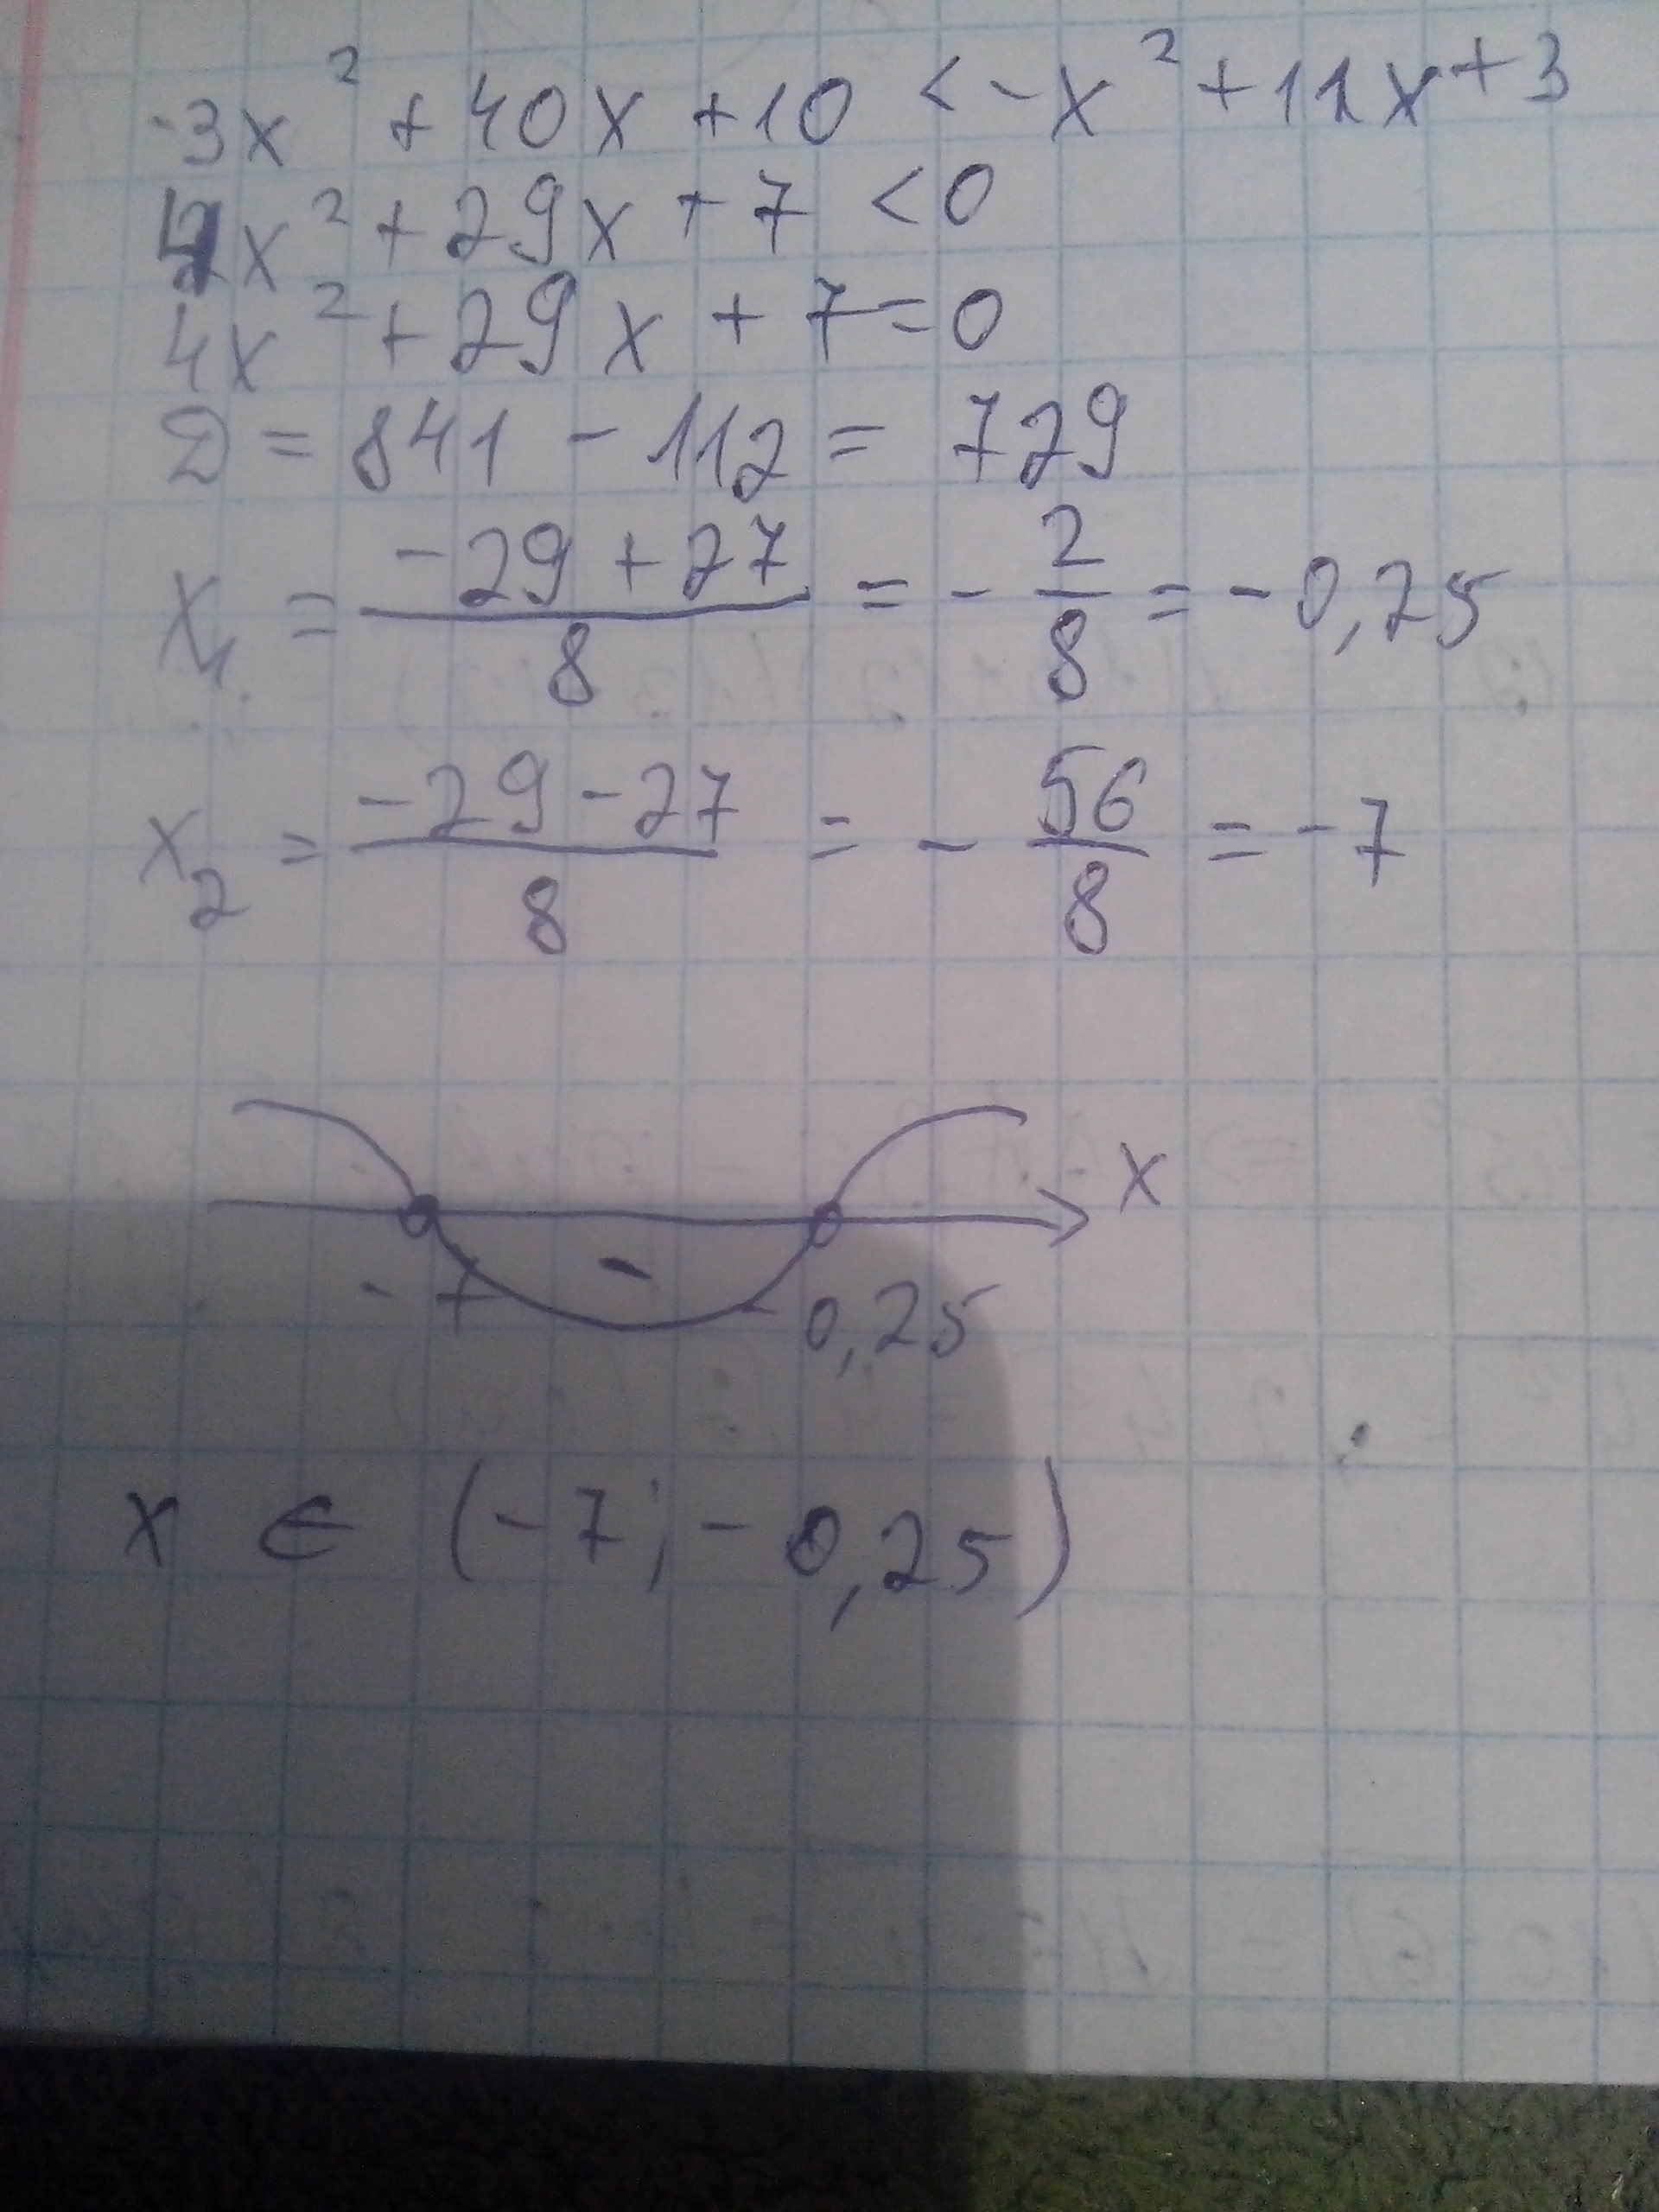 3x² + 40x + 10 < -x² + 11x + 3
4x² + 29x + 7 < 0
4x² + 29x + 7 = 0
D = 841 - 112 = 729
x₁ = (-29 + 27)/8 = - 2/8 = - 0,25
x₂ = (-29 - 27)/8 = - 56/8 = - 7
x
-
- 7 - 0,25
x ∈ (- 7; - 0,25)